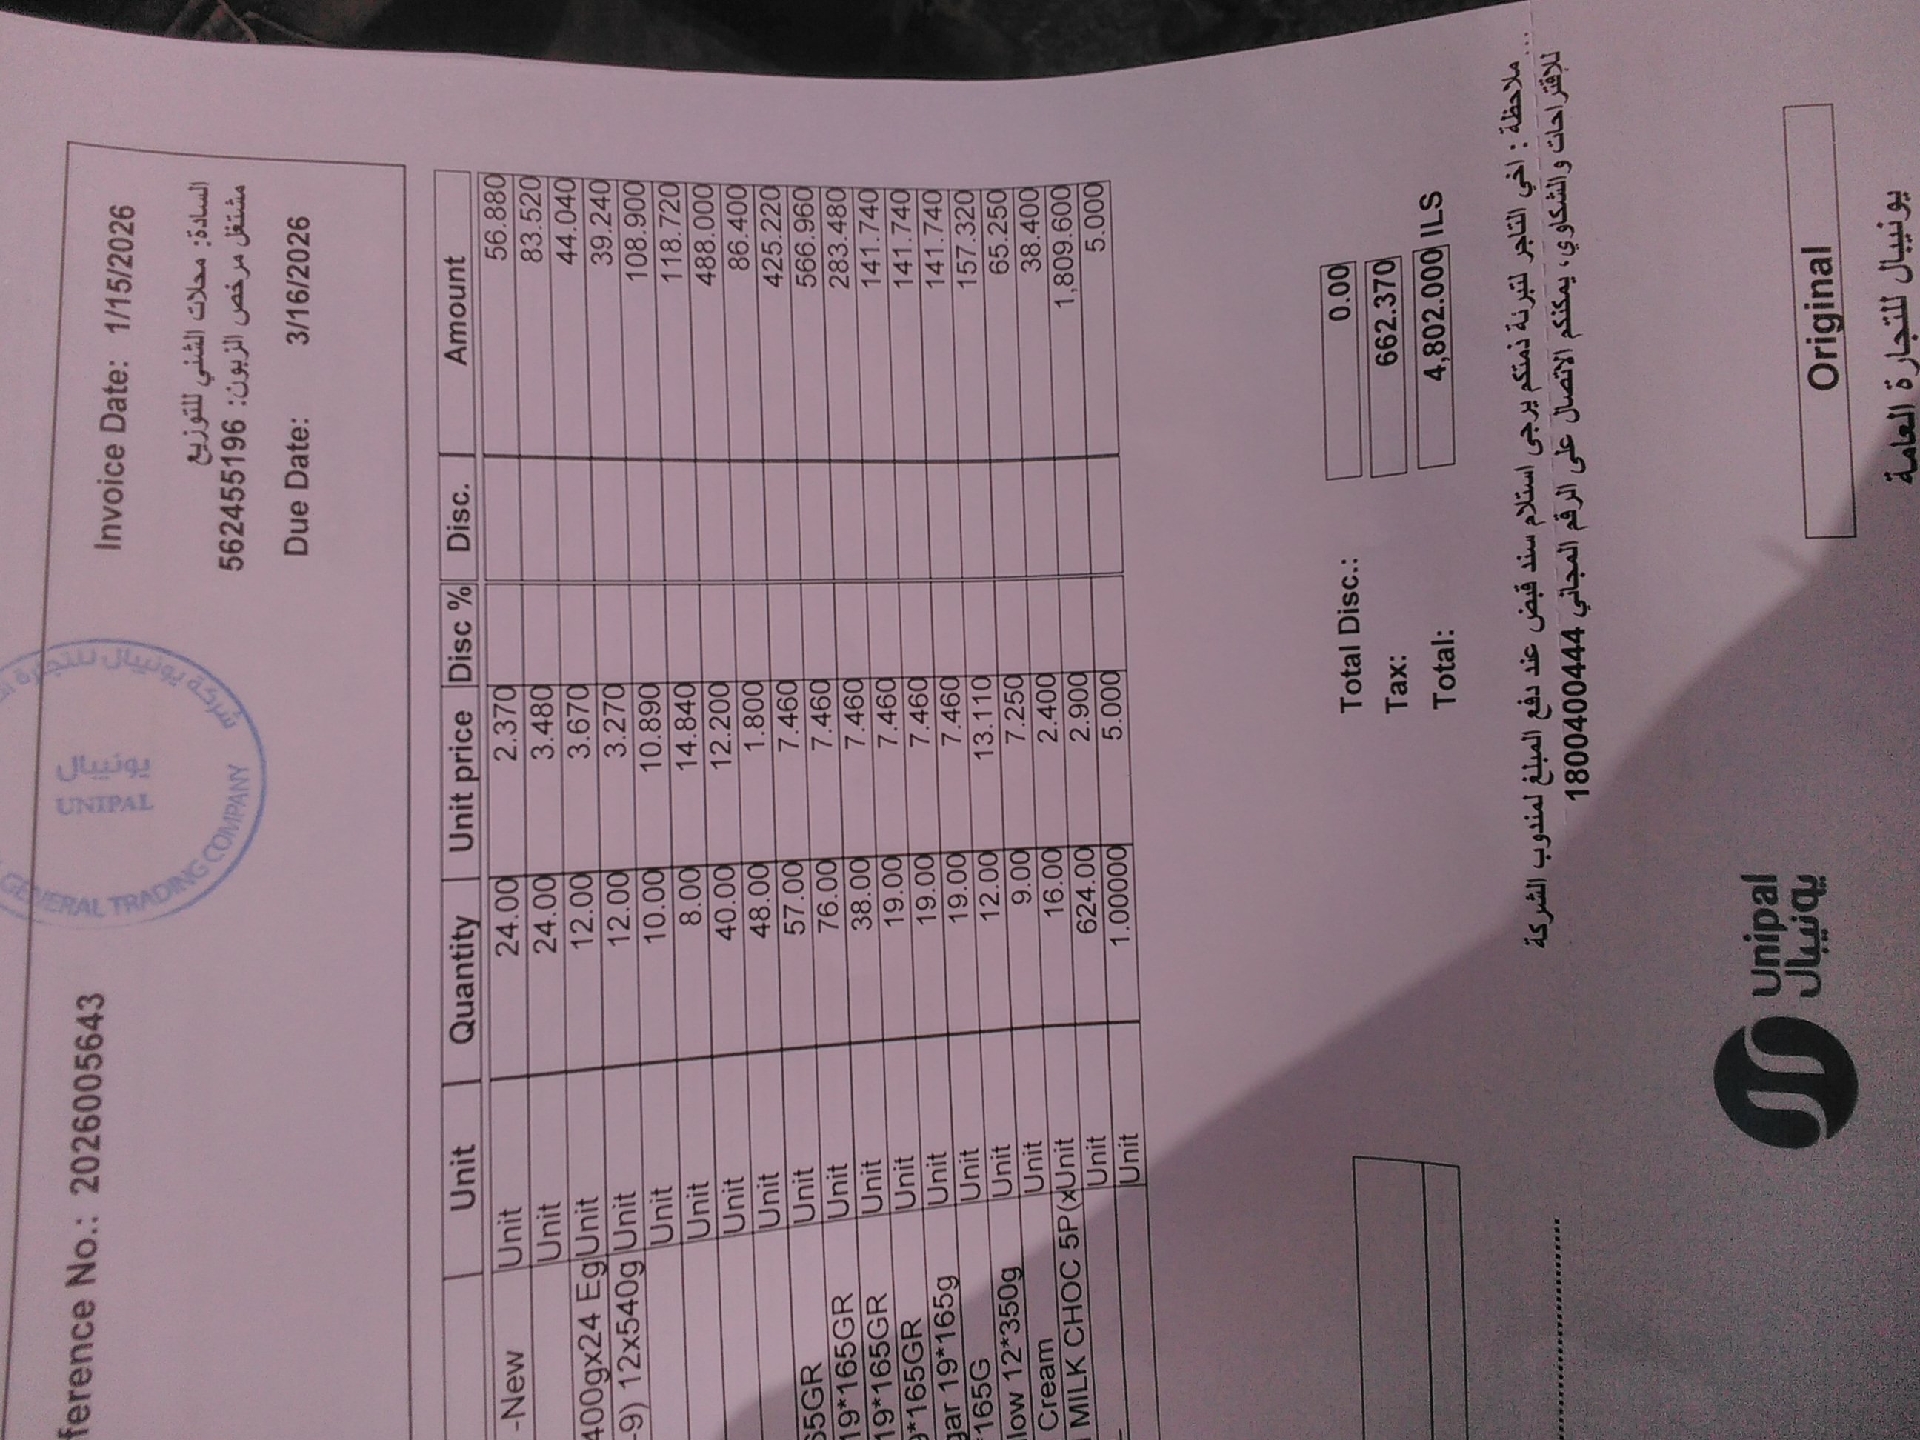 ference No.: 2026005643
Invoice Date: 1/15/2026
السادة: محلات الشني للتوزيع
مشتغل مرخص الزبون: 562455196
Due Date: 3/16/2026
شركة يونيبال للتجارة
يونيبال
UNIPAL
GENERAL TRADING COMPANY
Unit Quantity Unit price Disc % Disc. Amount
-New Unit 24.00 2.370 56.880
Unit 24.00 3.480 83.520
400gx24 Eg Unit 12.00 3.670 44.040
-9) 12x540g Unit 12.00 3.270 39.240
Unit 10.00 10.890 108.900
Unit 8.00 14.840 118.720
Unit 40.00 12.200 488.000
Unit 48.00 1.800 86.400
65GR Unit 57.00 7.460 425.220
19*165GR Unit 76.00 7.460 566.960
19*165GR Unit 38.00 7.460 283.480
9*165GR Unit 19.00 7.460 141.740
gar 19*165g Unit 19.00 7.460 141.740
*165G Unit 19.00 7.460 141.740
low 12*350g Unit 12.00 13.110 157.320
Cream Unit 9.00 7.250 65.250
MILK CHOC 5P(x Unit 16.00 2.400 38.400
Unit 624.00 2.900 1,809.600
Unit 1.00000 5.000 5.000
Total Disc.: 0.00
Tax: 662.370
Total: 4,802.000 ILS
ملاحظة : اخي التاجر لتبرئة ذمتكم يرجى استلام سند قبض عند دفع المبلغ لمندوب الشركة
للإقتراحات والشكاوي، يمكنكم الاتصال على الرقم المجاني 1800400444
Unipal
يونيبال
Original
يونيبال للتجارة العامة